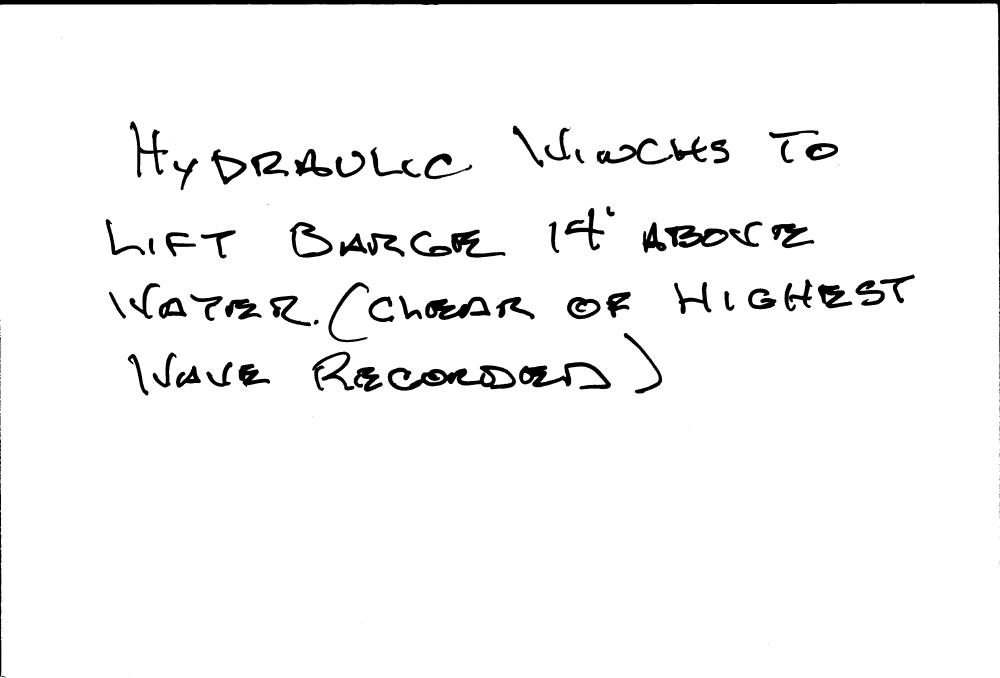 HYDRAULIC WINCHS TO
LIFT BARGE 14' ABOVE
WATER. (CLEAR OF HIGHEST
WAVE RECORDED)